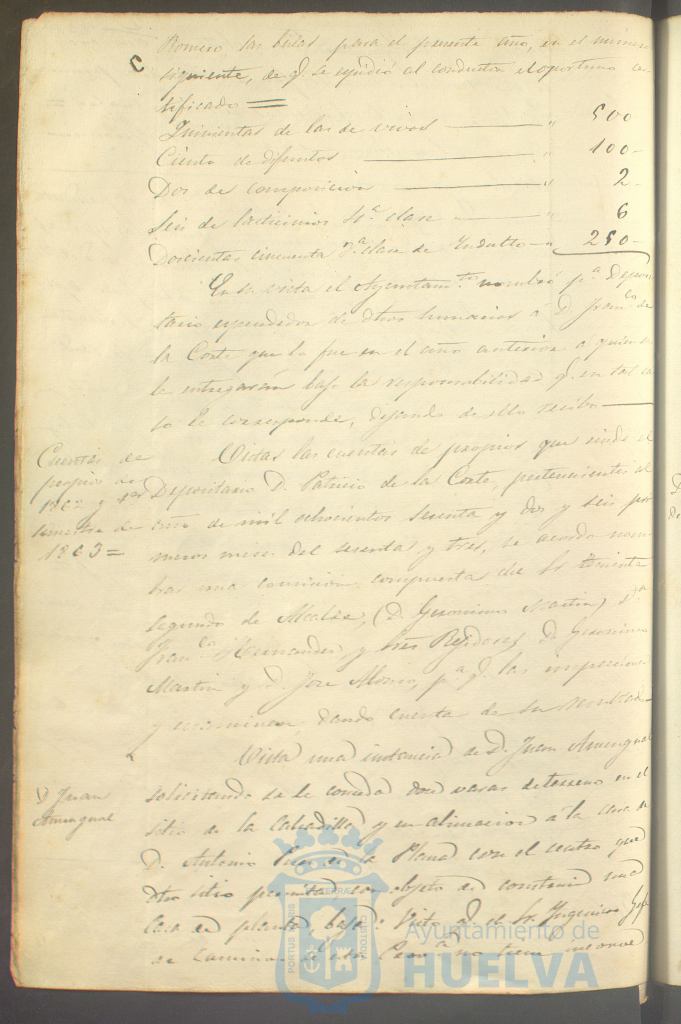 Romero, las bulas para el presente año, en el número
siguiente, de q. se espidió al conductor el oportuno cer
tificado =
Quinientas de las de vivos — " 500
Ciento de difuntos — " 100-
Dos de composición — " 2-
Seis de lacticinios 4.ª clase — " 6
Doscientas cincuenta 3.ª clase de Indulto — " 250-
En su vista el Ayuntam.to nombró p.ª Deposi
tario espendedor de dhos sumarios a D. Fran.co de
la Corte que lo fue en el año anterior a quien se
le entregarán bajo la responsabilidad q. en tal ca
so le corresponde, dejando de ello recibo —
Cuentas de
propios de
1862 y 1er
semestre de
1863=
Vistas las cuentas de propios que rinde el
Depositario D. Patricio de la Corte, pertenecientes al
año de mil ochocientos sesenta y dos y seis pri
meros meses del sesenta y tres, se acordó nom
brar una comisión compuesta del Sr. teniente
segundo de Alcalde, (D. Geronimo Martin) D.
Fran.co Hernandez, y Sres Rejidores D. Geronimo
Martin y D. Jose Alonso, p.ª q. las inspeccionen
y examinen, dando cuenta de su resultado
D. Juan
Amengual
Vista una instancia de D. Juan Amengual
solicitando se le conceda doce varas de terreno en el
sitio de la Calzadilla y en alineacion á la casa de
D. Antonio en la Plaza con el centro que
dho sitio permita con objeto de construir una
casa de planta baja: Visto q. el Sr. Ingeniero Gefe
de Caminos de esta Prov.ª no tiene inconve
PORTUS MARIS
ET TERRAE
CUSTODIA
Ayuntamiento de
HUELVA